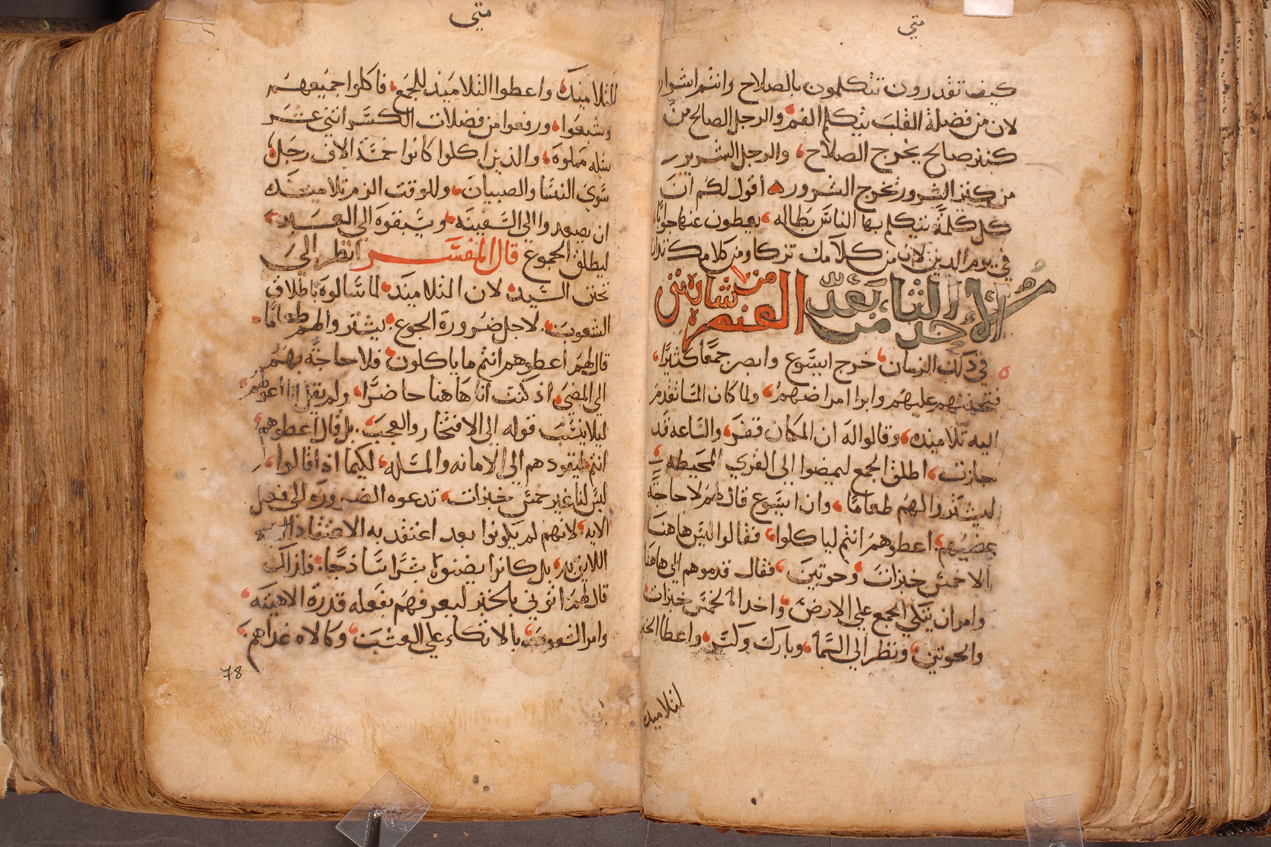 متي
كيف تقدرون تتكلمون بالصلاح وانتم اشرار
لان من فضلة القلب يتكلم الفم والرجل الصالح من
كنز صالح يخرج الصلاح والرجل الشرير
من كنز الشرور يخرج الشروره اقول لكم ان
كل كلمة يتكلم بها الناس بطاله يعطون عنها جوابا
في يوم الدين لان من كلامك تزكا ومن كلامك تدان
الاحد الثاني بعد من
العنصره
في ذلك الزمان خرج ايسوع وابصر جمعًا كثيرًا
فتحنن عليهم وابرا امراضهم ولما كان المسا تقدم
اليه تلاميذه وقالوا له ان المكان قفر والساعه قد
جازت اطلق الجمع ليمضوا الي القري المحيطه
ليشتروا لهم طعامًا وان ايسوع قال لهم لا حاجة
بمضيهم اعطوهم انتم لياكلوا فقالوا ليس هاهنا
الا خمس خبزات وحوتين فقال قدموهم الي هاهنا
وامر ان يتكي الجمع علي الارض واخذ الخمس خبزات
والحوتين ونظر الي السما وبارك واعطا
التلاميذ
متي
للتلاميذ واعطوا التلاميذ للجمع فاكلوا جميعهم
وشبعوا ورفعوا من فضلات الكسر اثني عشر
سله مملوة والذين اكلوا كانوا خمسة الاف رجل
سوي النسا والصبيان وللوقت الزم تلاميذه
ان يصعدوا الي السفينه ويسبقوه الي العبر
ليطلق الجموع قال المفسر انظر الي
تحنن السيد لان التلاميذ لما سالوه باطلاق
الشعوب لاجل ضرورة الجوع يشتروا لهم طعامًا
قال لهم اعطوهم انتم ما ياكلون فلا حاجة بهم
الي المضي اذ كنت انا هاهنا حاضرًا ولم يقل انا اعطيهم
ليلا ينسب قوله الي الافتخار والعجب بل قال اعطوهم
انتم ليقودهم الي الامانه والمسله لكيما اذا قالوا
ليس لنا غير خمس خبزات تدعوه الضروره الي فعل
الايه لانهم لم يكونوا بعد اعتقد به الاعتقاد
اللاين به بل كانوا يضنوه بشرًا ساذجًا
قال لهم اتوني بالخبز ليعرفهم بفعله قدرة الاهيته
وامر الشعوب بالاتكا علي العشب
78